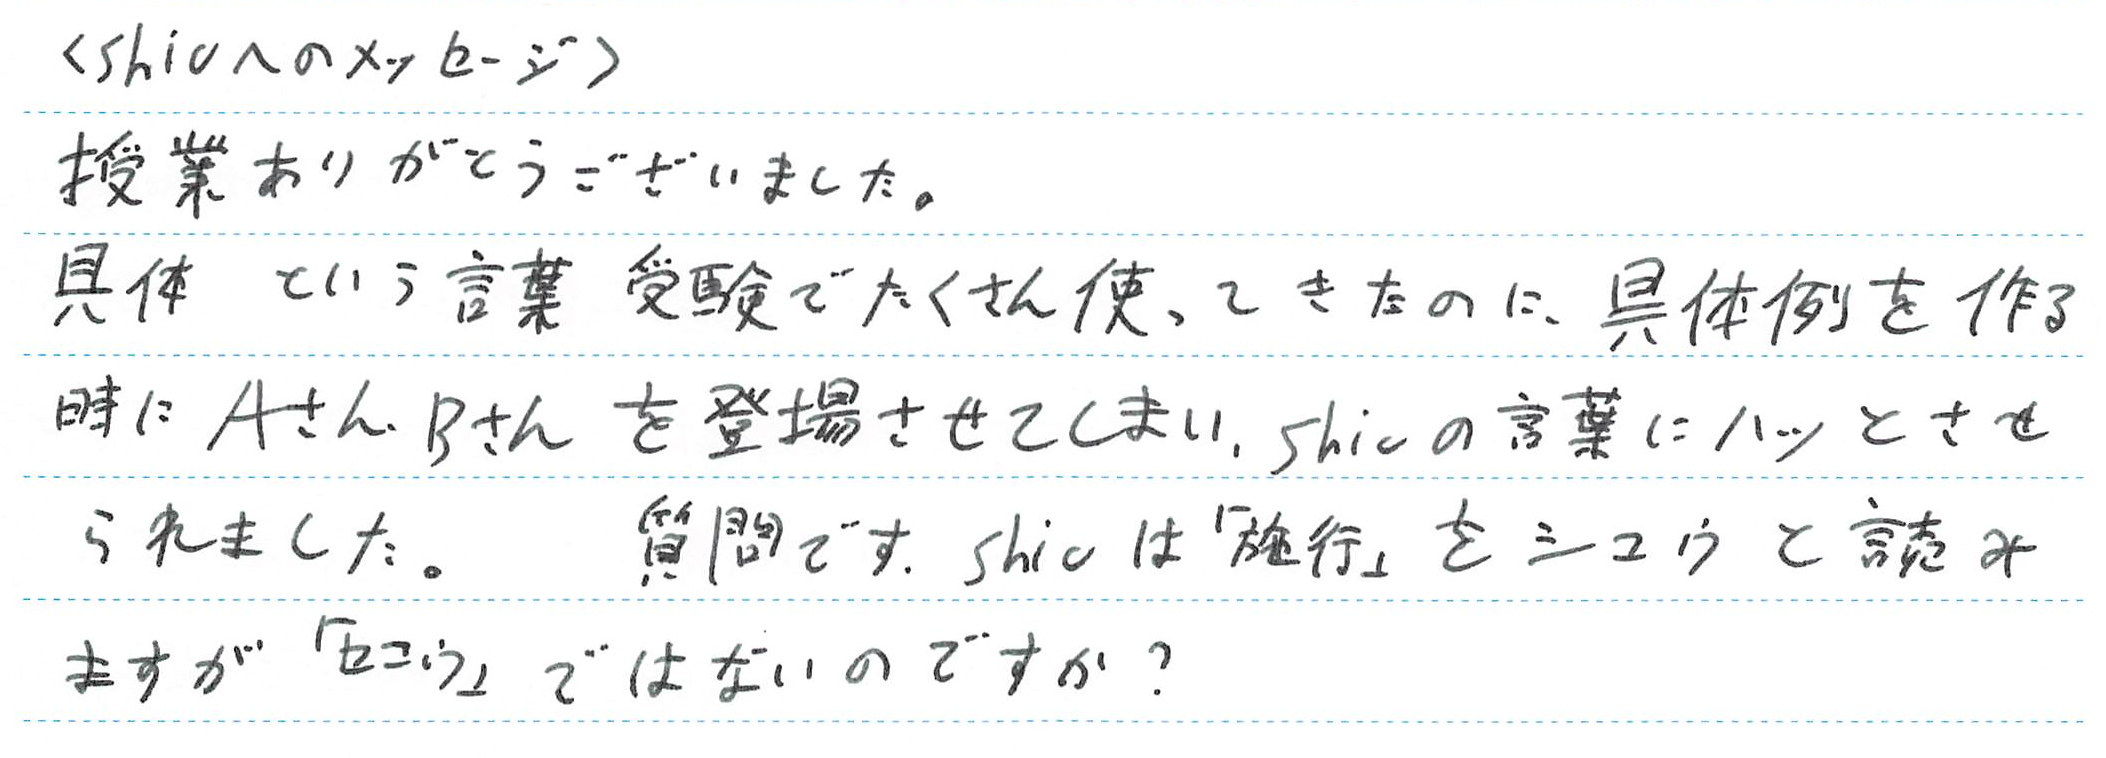 <shioへのメッセージ>
授業ありがとうございました。
具体 という言葉 受験でたくさん使ってきたのに、具体例を作る
時にAさん、Bさん を登場させてしまい、shioの言葉にハッとさせ
られました。 質問です。shioは「施行」をシコウと読み
ますが「セコウ」ではないのですか?